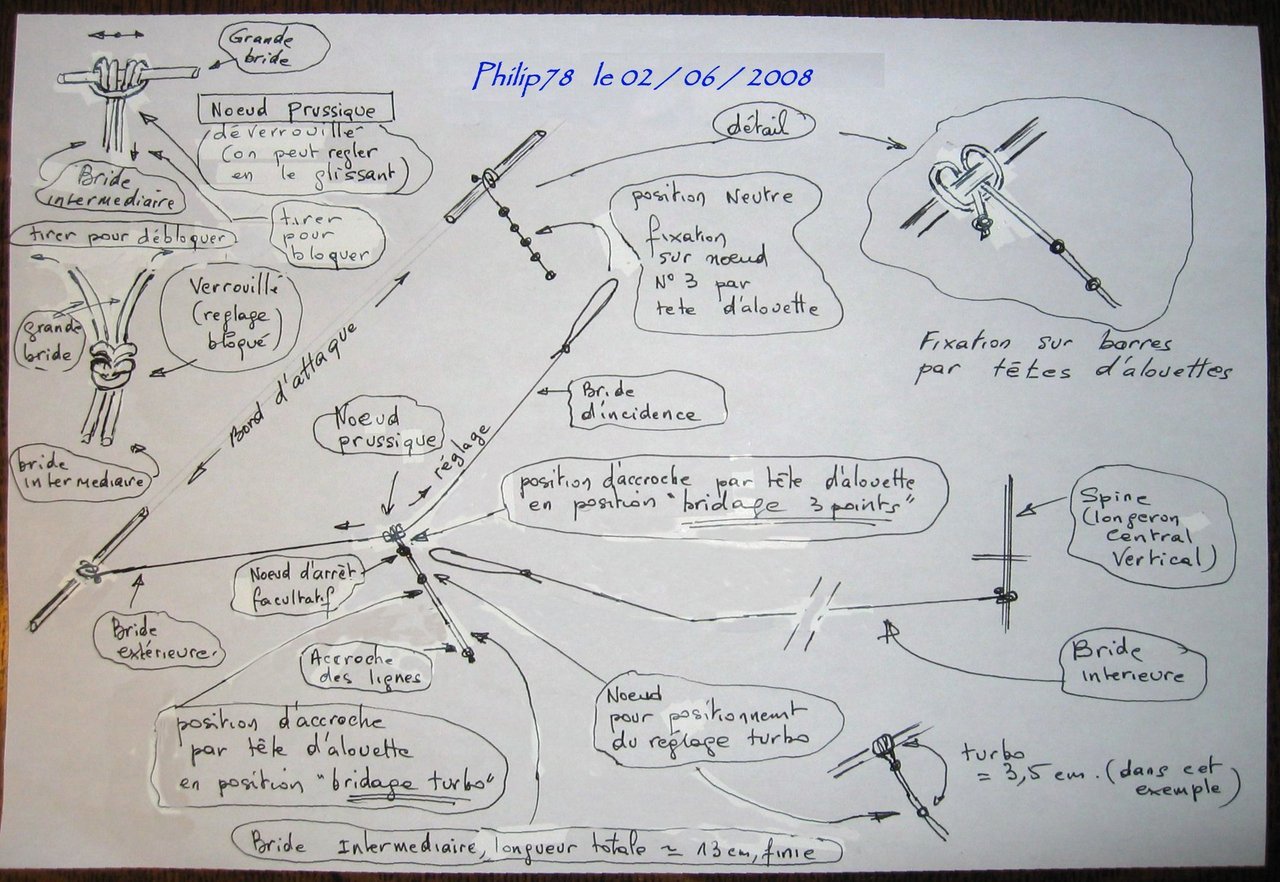 Philip78 le 02/06/2008
Grande
bride
Noeud Prussique
déverrouillé
(on peut regler
en le glissant)
Bride
intermediaire
tirer
pour
bloquer
tirer pour débloquer
Verrouillé
(reglage
bloqué)
grande
bride
bride
intermediaire
Bord d'attaque
détail
position Neutre
fixation
sur noeud
N° 3 par
tete d'alouette
Fixation sur barres
par têtes d'alouettes
Bride
d'incidence
Noeud
prussique
réglage
position d'accroche par tête d'alouette
en position "bridage 3 points"
Spine
(longeron
central
Vertical)
Noeud d'arrêt
facultatif
Bride
extérieure
Accroche
des lignes
Bride
interieure
Noeud
pour positionnemt
du réglage turbo
position d'accroche
par tête d'alouette
en position "bridage turbo"
turbo
= 3,5 cm. (dans cet
exemple)
Bride Intermediaire, longueur totale ≃ 13 cm, finie